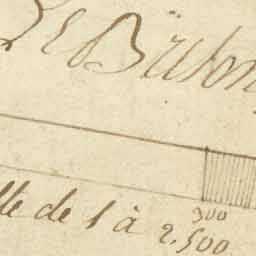 Le Buston
300
lle de 1 à 2.500